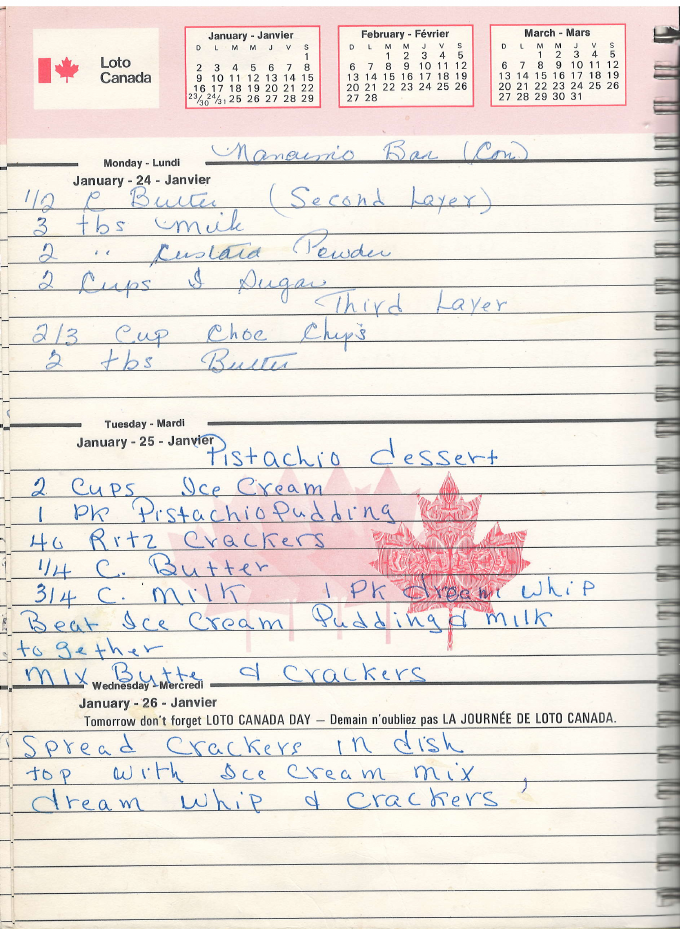 Loto
Canada
January - Janvier
D L M M J V S
1
2 3 4 5 6 7 8
9 10 11 12 13 14 15
16 17 18 19 20 21 22
23/30 24/31 25 26 27 28 29
February - Février
D L M M J V S
1 2 3 4 5
6 7 8 9 10 11 12
13 14 15 16 17 18 19
20 21 22 23 24 25 26
27 28
March - Mars
D L M M J V S
1 2 3 4 5
6 7 8 9 10 11 12
13 14 15 16 17 18 19
20 21 22 23 24 25 26
27 28 29 30 31
Nanaimo Bar (Con)
Monday - Lundi
January - 24 - Janvier
1/2 C Butter (Second Layer)
3 tbs milk
2 " Custard Powder
2 Cups I Sugar
Third Layer
2/3 Cup Choc Chips
2 tbs Butter
Tuesday - Mardi
January - 25 - Janvier
Pistachio dessert
2 Cups Ice Cream
1 PK Pistachio Pudding
40 Ritz Crackers
1/4 C. Butter
3/4 C. Milk 1 PK dream whip
Beat Ice Cream Pudding & milk
together
mix Butte & Crackers
Wednesday - Mercredi
January - 26 - Janvier
Tomorrow don't forget LOTO CANADA DAY — Demain n'oubliez pas LA JOURNÉE DE LOTO CANADA.
Spread Crackers in dish
top with Ice Cream mix,
dream whip & Crackers